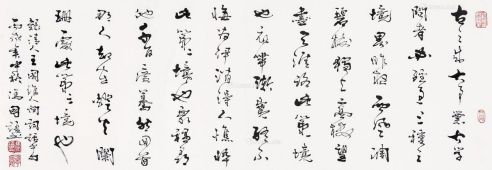 古今之成大事業大学
问者必经过三种之
境界昨夜西风凋
碧树独上高楼望
尽天涯路此第一境
也衣带渐宽终不
悔为伊消得人憔悴
此第二境也众里寻
他千百度蓦然回首
那人却在灯火阑
珊处此第三境也